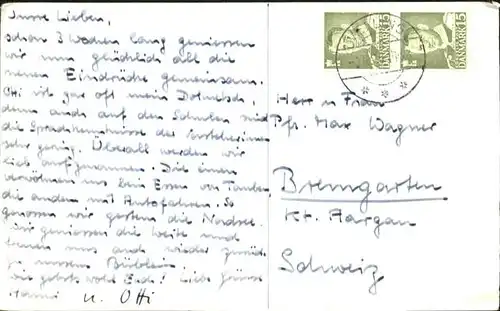 Eure Lieben,
schon 3 Wochen lang geniessen
wir nun glücklich all die
neuen Eindrücke gemeinsam.
Otti ist gar oft mein Dolmetsch,
denn auch auf den Schulen sind
die Sprachkenntnisse der
sehr gering. Überall werden wir
lieb aufgenommen. Die einen
verwöhnen uns beim Essen von Tauben
die andern mit Autofahren. So
genossen wir gestern die Nordsee.
Wir geniessen die Weite und
freuen uns auch wieder zurück
zu unserm Büblein
Wie gehts wohl Euch? Liebe Grüsse
Hanni u. Otti
DANMARK 15
DANMARK 15
Herr u Frau
Pfr. Max Wagner
Bremgarten
Kt. Aargau
Schweiz